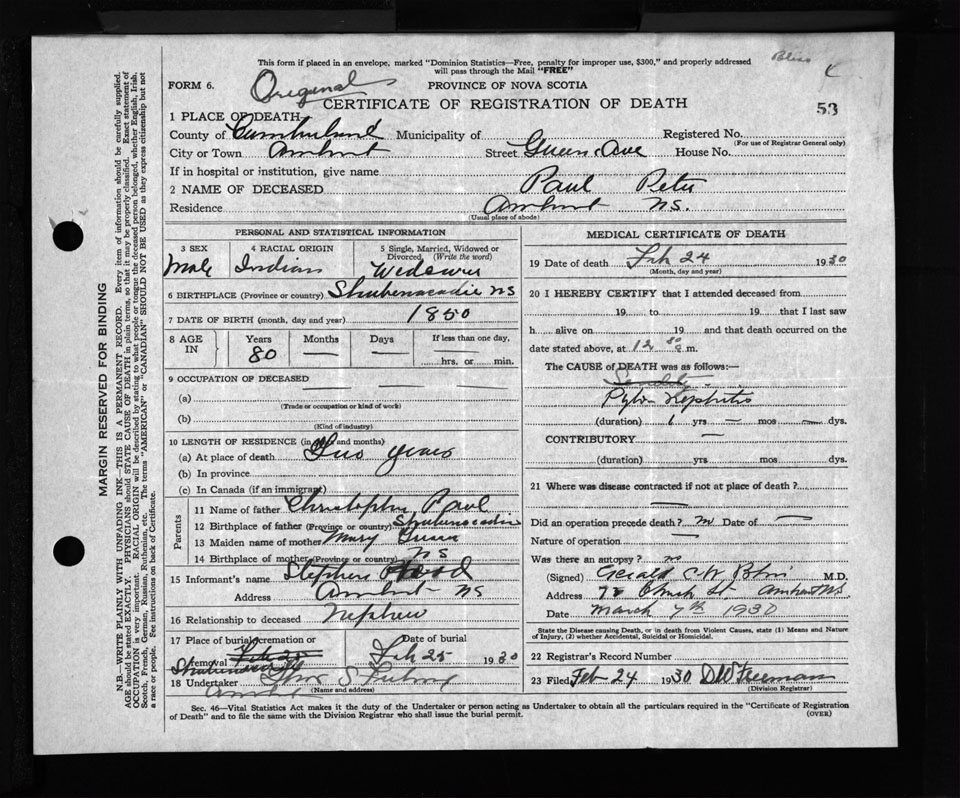 This form if placed in an envelope, marked "Dominion Statistics—Free, penalty for improper use, $300," and properly addressed
will pass through the Mail "FREE"
Bliss
FORM 6.
Original
PROVINCE OF NOVA SCOTIA
CERTIFICATE OF REGISTRATION OF DEATH
53
1 PLACE OF DEATH
County of Cumberland Municipality of Registered No.
(For use of Registrar General only)
City or Town Amherst Street Queen Ave House No.
If in hospital or institution, give name
2 NAME OF DECEASED Paul Peter
Residence Amherst NS.
(Usual place of abode)
PERSONAL AND STATISTICAL INFORMATION
3 SEX 4 RACIAL ORIGIN 5 Single, Married, Widowed or Divorced (Write the word)
Male Indian Widower
6 BIRTHPLACE (Province or country) Shubenacadie NS
7 DATE OF BIRTH (month, day and year) 1850
8 AGE IN Years Months Days If less than one day,
80 — — hrs. or min.
9 OCCUPATION OF DECEASED
(a)
(Trade or occupation or kind of work)
(b)
(Kind of industry)
10 LENGTH OF RESIDENCE (in years and months)
(a) At place of death Two years
(b) In province
(c) In Canada (if an immigrant)
Parents
11 Name of father Christopher Paul
12 Birthplace of father (Province or country) Shubenacadie
13 Maiden name of mother Mary
14 Birthplace of mother (Province or country) NS
15 Informant's name Stephen
Address Amherst NS
16 Relationship to deceased Nephew
17 Place of burial cremation or removal Feb 25 Date of burial Feb 25 1930
Shubenacadie
18 Undertaker
(Name and address)
Amherst
MEDICAL CERTIFICATE OF DEATH
19 Date of death Feb 24 1930
(Month, day and year)
20 I HEREBY CERTIFY that I attended deceased from
19 to 19 that I last saw
h alive on 19 and that death occurred on the
date stated above, at 12 m.
The CAUSE of DEATH was as follows:—
Senility
Pylo-Nephritis
(duration) 1 yrs — mos — dys.
CONTRIBUTORY —
(duration) yrs mos dys.
21 Where was disease contracted if not at place of death?
Did an operation precede death? no Date of —
Nature of operation —
Was there an autopsy? no
(Signed) Gerald C W Bliss M.D.
Address Church St Amherst NS
Date March 7th 1930
State the Disease causing Death, or in death from Violent Causes, state (1) Means and Nature of Injury, (2) whether Accidental, Suicidal or Homicidal.
22 Registrar's Record Number
23 Filed Feb 24 1930 DW Freeman
(Division Registrar)
Sec. 46—Vital Statistics Act makes it the duty of the Undertaker or person acting as Undertaker to obtain all the particulars required in the "Certificate of Registration
of Death" and to file the same with the Division Registrar who shall issue the burial permit.
(OVER)
MARGIN RESERVED FOR BINDING
N.B.—WRITE PLAINLY WITH UNFADING INK—THIS IS A PERMANENT RECORD. Every item of information should be carefully supplied.
AGE should be stated EXACTLY. PHYSICIANS should STATE CAUSE OF DEATH in plain terms, so that it may be properly classified. Exact statement of
OCCUPATION is very important. RACIAL ORIGIN will be described by stating to what people or tongue the deceased person belonged, whether English, Irish,
Scotch, French, German, Russian, Ruthenian, etc. The terms "AMERICAN" or "CANADIAN" SHOULD NOT BE USED as they express citizenship but not
a race or people. See instructions on back of Certificate.